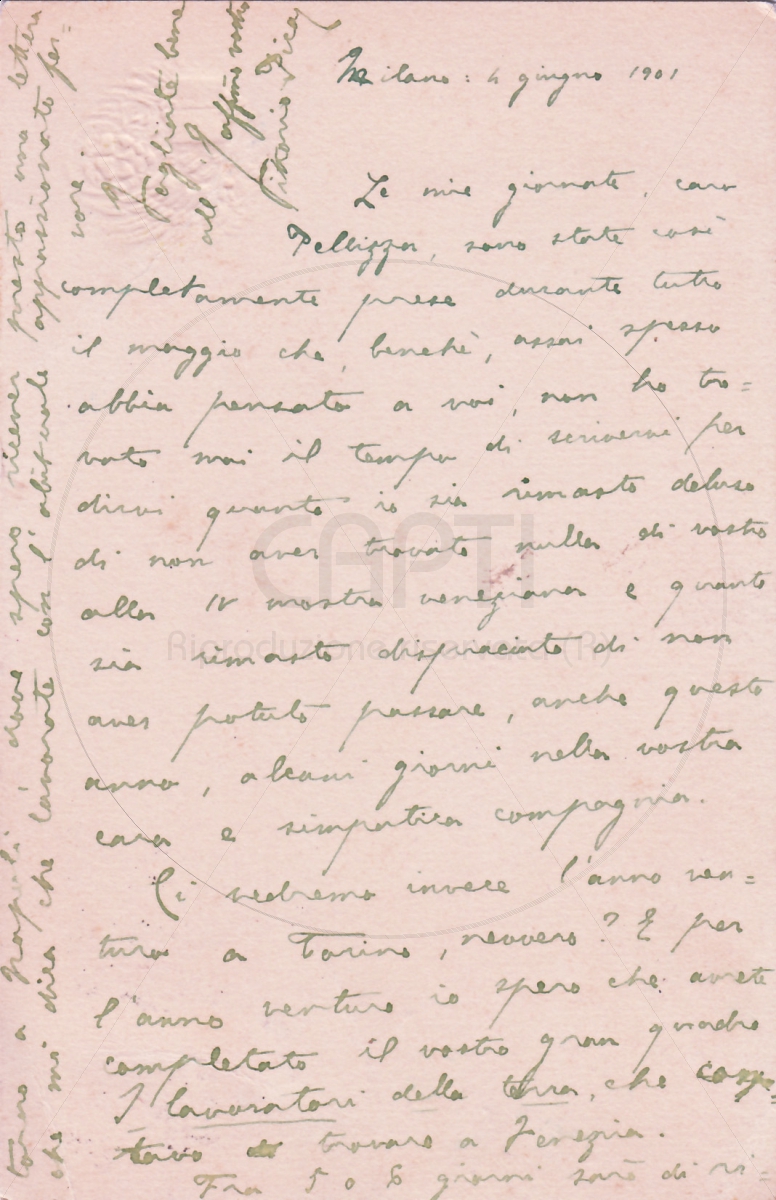 Milano: 4 giugno 1901
Le mie giornate, caro
Pellizza, sono state così
completamente prese durante tutto
il maggio che, benchè, assai spesso
abbia pensato a voi, non ho tro=
vato mai il tempo di scrivervi per
dirvi quanto io sia rimasto deluso
di non aver trovato nulla di vostro
alla IV mostra veneziana e quanto
sia rimasto dispiaciuto di non
aver potuto passare, anche questo
anno, alcuni giorni nella vostra
cara e simpatica compagnia.
Ci vedremo invece l'anno ven=
turo a Torino, nevvero? E per
l'anno venturo io spero che avrete
completato il vostro gran quadro
I lavoratori della terra, che
trovare a Venezia.
Fra 5 o 6 giorni sarò di ri-
torno a Napoli dove spero ricever presto una lettera
che mi dica che lavorate con l'abituale appassionato fer-
vore.
Vogliate bene
all'affmo vostro
Vittorio Pica
CAPTI
Riproduzione riservata (R)